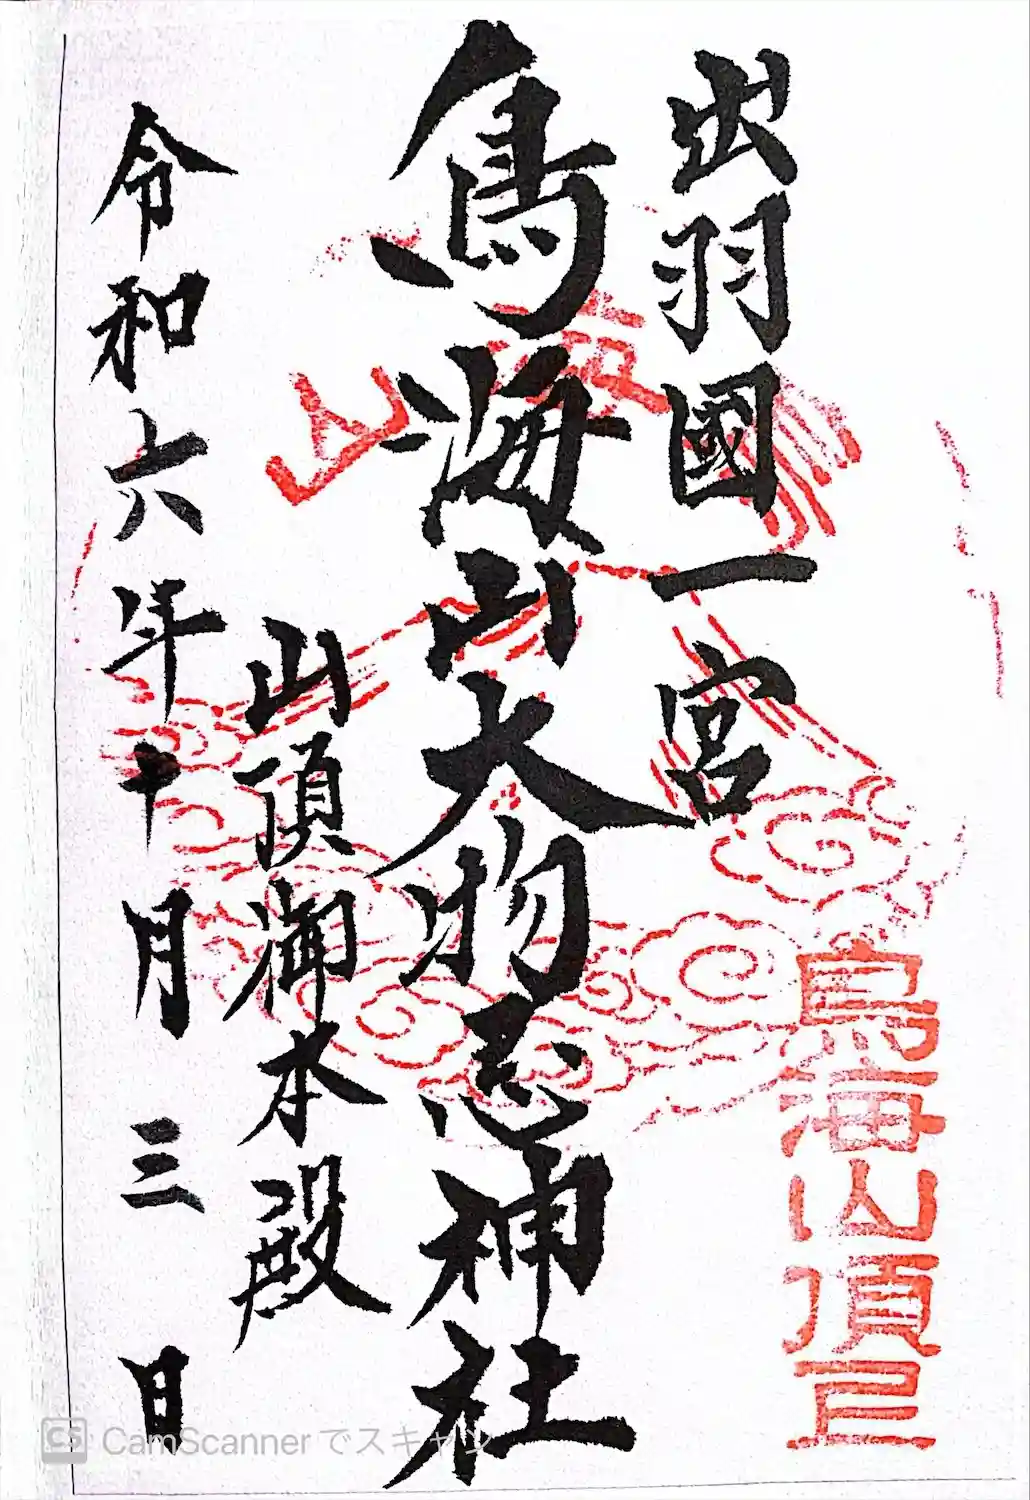 出羽國一宮
鳥海山大物忌神社
山頂御本殿
令和六年十月三日
鳥海山頂
CamScannerでスキャン